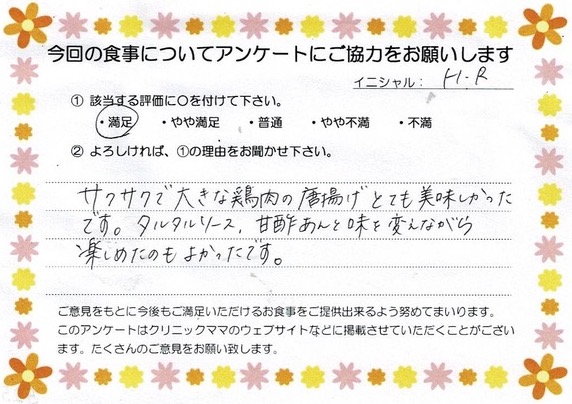 今回の食事についてアンケートにご協力をお願いします
イニシャル: H.R
① 該当する評価に○を付けて下さい。
・満足 ・やや満足 ・普通 ・やや不満 ・不満
② よろしければ、①の理由をお聞かせ下さい。
サクサクで大きな鶏肉の唐揚げとても美味しかった
です。タルタルソース、甘酢あんと味を変えながら
楽しめたのもよかったです。
ご意見をもとに今後もご満足いただけるお食事をご提供出来るよう努めてまいります。
このアンケートはクリニックママのウェブサイトなどに掲載させていただくことがござい
ます。たくさんのご意見をお願い致します。